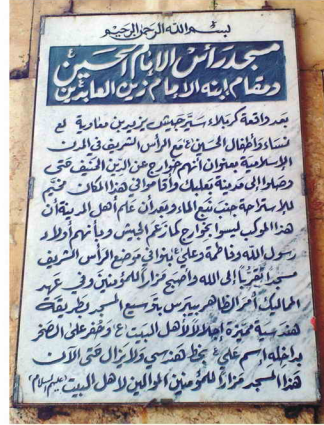 بسم الله الرحمن الرحيم
مسجد رأس الإمام الحسين ع
ومقام إبنه الإمام زين العابدين
بعد واقعة كربلاء سيّر جيش يزيد بن معاوية لع
نساء وأطفال الحسين ع مع الرأس الشريف في المدن
الإسلامية بعنوان أنهم خوارج عن الدين الحنيف حتى
وصلوا إلى مدينة بعلبك وأقاموا في هذا المكان مخيم
للإستراحة جنب نبع الماء وبعد أن علم أهل المدينة أن
هذا الموكب ليسوا بخوارج كما زعم الجيش وبأنهم أولاد
رسول الله وفاطمة وعلي ع بنوا في موضع الرأس الشريف
مسجداً تقرباً إلى الله وأصبح مزاراً للمؤمنين وفي عهد
المماليك أمر الظاهر بيبرس بتوسيع المسجد بطريقة
هندسية مميزة إجلالاً لأهل البيت ع وحفر على الصخر
بداخله اسم علي ع بخط هندسي ولا يزال حتى الآن
هذا المسجد مزاراً للمؤمنين الموالين لأهل البيت (عليهم السلام)